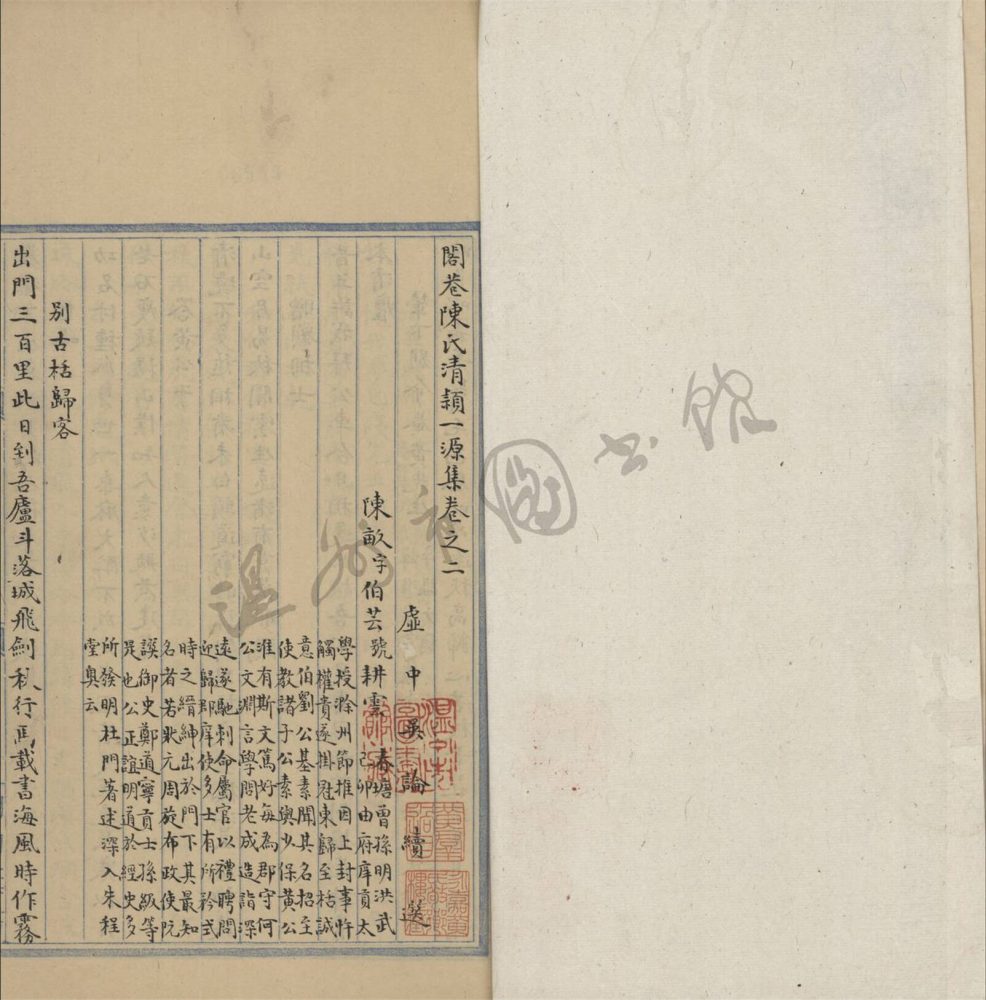 閣巷陳氏清頴一源集卷之二
虛中吳論續選
陳畝字伯芸號耕雲
春塘曾孫明洪武
己卯由府庠貢太
學授滁州節推因上封事忤
觸權貴遂掛冠東歸至栝誠
意伯劉公基素聞其名招至
使教諸子公素與少保黃公
淮有斯文篤好每為郡守何
公文淵言學問老成造詣深
遠遂馳刺命屬官以禮聘問
迎歸郡庠使多士有所矜式
時之縉紳出於門下其最知
名者若狀元周旋布政使阮
謨御史鄭道寧貢士孫級等
是也公正誼明道於經史多
所發明杜門著述深入朱程
堂奧云
別古栝歸客
出門三百里此日到吾廬斗落城飛劍秋行馬載書海風時作霧
温州市圖書館